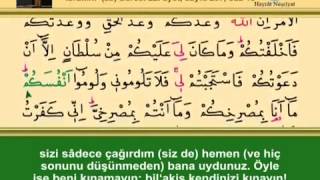 Hayrât Neşriyat
الْاَمْرُ اِنَّ اللّٰهَ وَعَدَكُمْ وَعْدَ الْحَقِّ وَوَعَدْتُكُمْ
فَاَخْلَفْتُكُمْ وَمَا كَانَ لِيَ عَلَيْكُمْ مِنْ سُلْطَانٍ اِلَّٓا اَنْ
دَعَوْتُكُمْ فَاسْتَجَبْتُمْ لِي فَلَا تَلُومُونِي وَلُومُٓوا اَنْفُسَكُمْ
مَٓا اَنَا بِمُصْرِخِكُمْ وَمَٓا اَنْتُمْ بِمُصْرِخِيَّ اِنِّي كَفَرْتُ
sizi sâdece çağırdım (siz de) hemen (ve hiç
sonunu düşünmeden) bana uydunuz. Öyle
ise beni kınamayın; bil'akis kendinizi kınayın!